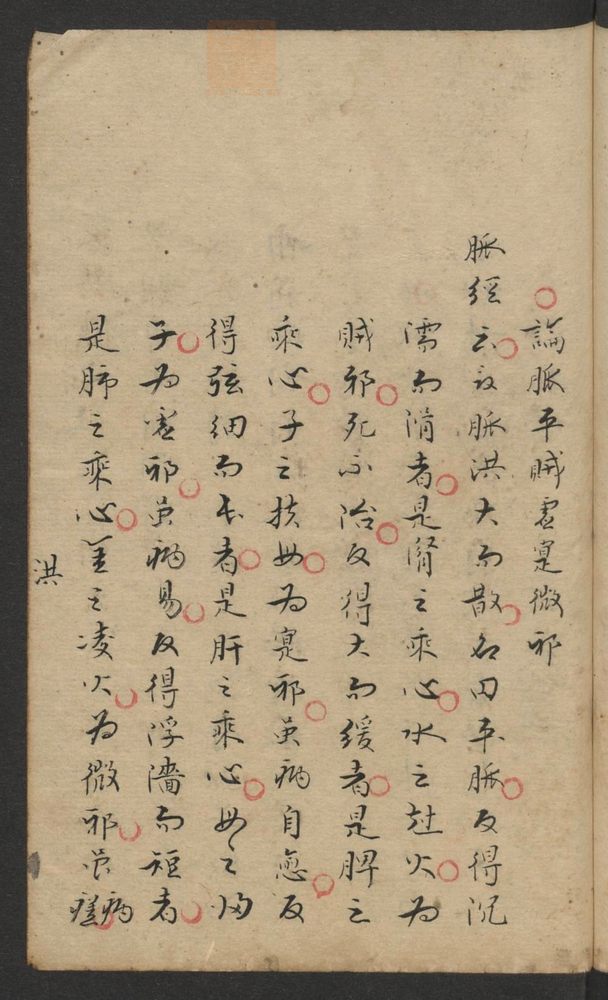 論脈平賊虚寔微邪
脉經云設脉洪大而散名曰平脉反得沉
濡而滑者是腎之乘心水之尅火為
賊邪死不治反得大而緩者是脾之
乘心子之扶母為寔邪虽病自愈反
得弦細而長者是肝之乘心母之歸
子為虚邪虽病易反得浮濇而短者
是肺之乘心金之凌火為微邪虽病
瘥
洪